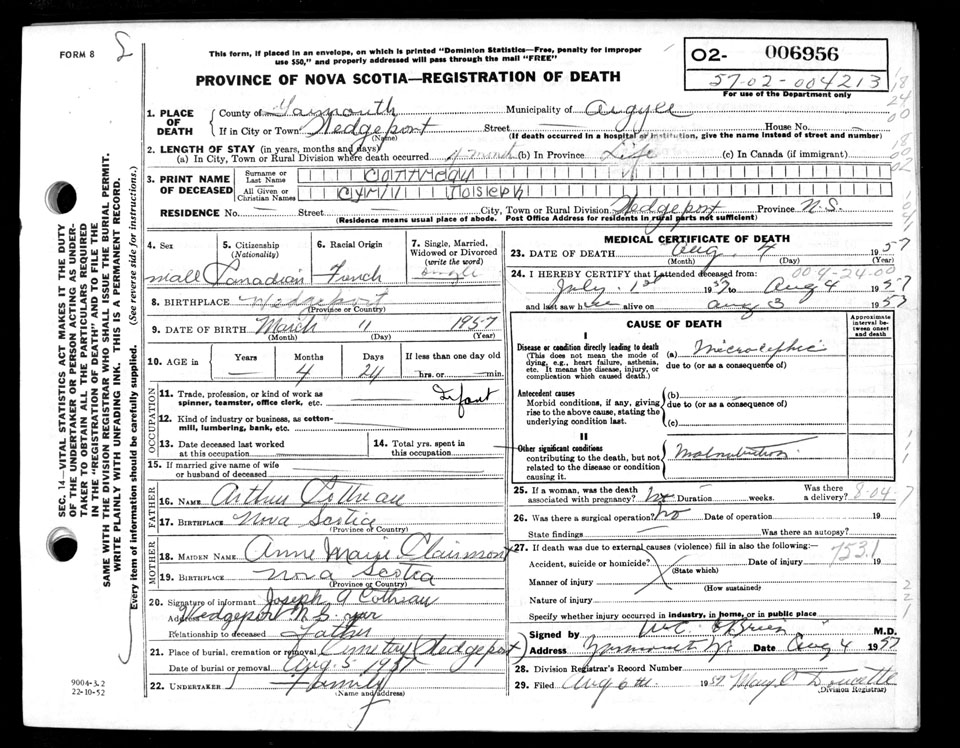 FORM 8
This form, if placed in an envelope, on which is printed "Dominion Statistics—Free, penalty for improper
use $50," and properly addressed will pass through the mail "FREE"
PROVINCE OF NOVA SCOTIA—REGISTRATION OF DEATH
O2- 006956
57-02-004213
For use of the Department only
SEC. 14—VITAL STATISTICS ACT MAKES IT THE DUTY
OF THE UNDERTAKER OR PERSON ACTING AS UNDER-
TAKER TO OBTAIN ALL THE PARTICULARS REQUIRED
IN THE "REGISTRATION OF DEATH" AND TO FILE THE
SAME WITH THE DIVISION REGISTRAR WHO SHALL ISSUE THE BURIAL PERMIT.
WRITE PLAINLY WITH UNFADING INK. THIS IS A PERMANENT RECORD.
Every item of information should be carefully supplied. (See reverse side for instructions.)
1. PLACE OF DEATH County of Yarmouth Municipality of Argyle
If in City or Town Wedgeport Street House No.
(Name) (If death occurred in a hospital or institution, give the name instead of street and number)
2. LENGTH OF STAY (in years, months and days)
(a) In City, Town or Rural Division where death occurred 4 month (b) In Province Life (c) In Canada (if immigrant)
3. PRINT NAME OF DECEASED Surname or Last Name Cottreau
All Given or Christian Names Cyrill Joseph
RESIDENCE No. Street City, Town or Rural Division Wedgeport Province N.S.
(Residence means usual place of abode. Post Office Address for residents in rural parts not sufficient)
4. Sex
5. Citizenship (Nationality)
6. Racial Origin
7. Single, Married, Widowed or Divorced (write the word)
mall Canadian French Single
8. BIRTHPLACE Wedgeport
(Province or Country)
9. DATE OF BIRTH March 11 1957
(Month) (Day) (Year)
10. AGE in Years Months 4 Days 24 If less than one day old hrs. or min.
OCCUPATION
11. Trade, profession, or kind of work as spinner, teamster, office clerk, etc. Infant
12. Kind of industry or business, as cotton-mill, lumbering, bank, etc.
13. Date deceased last worked at this occupation
14. Total yrs. spent in this occupation
15. If married give name of wife or husband of deceased
FATHER
16. NAME Arthur Cottreau
17. BIRTHPLACE Nova Scotia
(Province or Country)
MOTHER
18. MAIDEN NAME Anne Marie Clairmont
19. BIRTHPLACE Nova Scotia
(Province or Country)
20. Signature of informant Joseph A Cottreau
Address Wedgeport N.S.
Relationship to deceased Father
21. Place of burial, cremation or removal Cemetry (Wedgeport)
Date of burial or removal Aug. 5 1957
22. UNDERTAKER Family
(Name and address)
9004-3.2
22-10-52
MEDICAL CERTIFICATE OF DEATH
23. DATE OF DEATH Aug. 4 1957
(Month) (Day) (Year)
004-24-00
24. I HEREBY CERTIFY that I attended deceased from:
July 1st 1957 to Aug 4 1957
and last saw h alive on Aug 3 1957
CAUSE OF DEATH
Approximate interval between onset and death
I
Disease or condition directly leading to death
(This does not mean the mode of dying, e.g., heart failure, asthenia, etc. It means the disease, injury, or complication which caused death.)
(a) Microcephic
due to (or as a consequence of)
Antecedent causes
Morbid conditions, if any, giving rise to the above cause, stating the underlying condition last.
(b)
due to (or as a consequence of)
(c)
II
Other significant conditions
contributing to the death, but not related to the disease or condition causing it.
Malnutrition
25. If a woman, was the death associated with pregnancy? No Duration weeks. Was there a delivery? 8-04-7
26. Was there a surgical operation? No Date of operation 19
State findings Was there an autopsy?
27. If death was due to external causes (violence) fill in also the following:— 753.1
Accident, suicide or homicide? Date of injury 19
(State which)
Manner of injury
(How sustained)
Nature of injury
Specify whether injury occurred in industry, in home, or in public place
Signed by W.C. O'Brien M.D.
Address Yarmouth N.S. Date Aug 4 1957
28. Division Registrar's Record Number
29. Filed Aug 6th 1957 Mary Doucette
(Division Registrar)